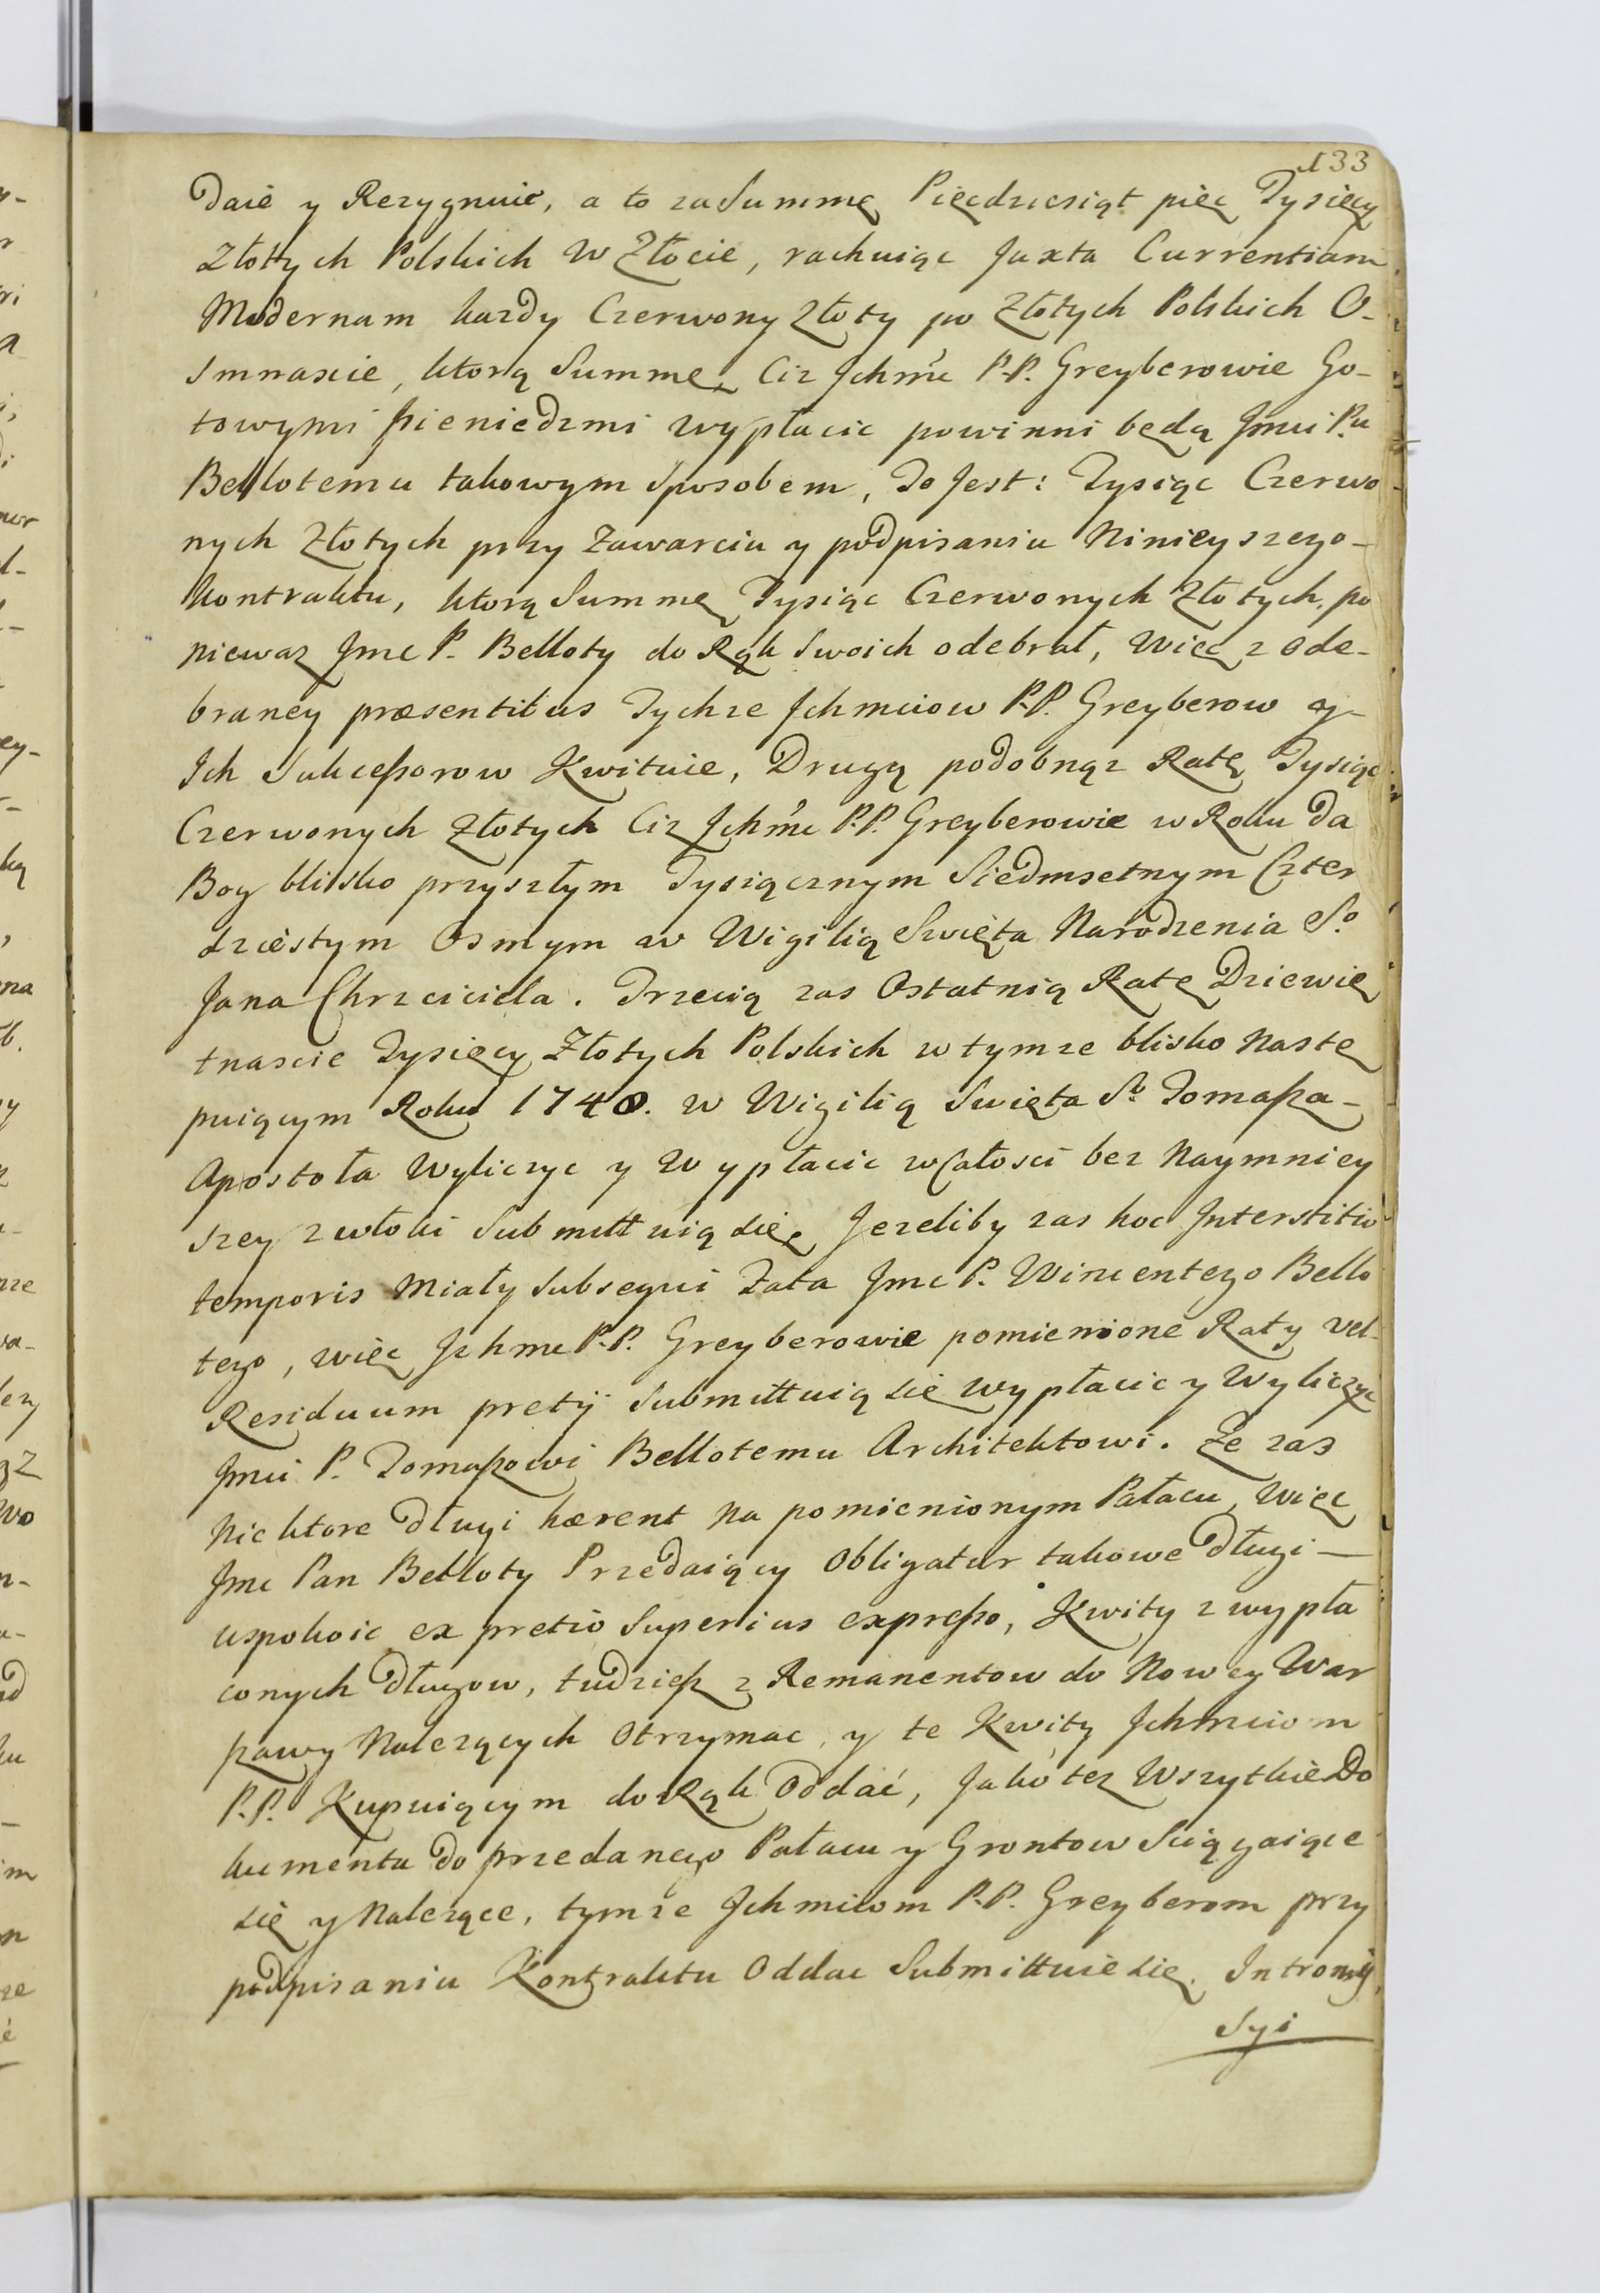 133
Daie y Rezygnuie, a to za Summę Pięcdziesiąt pięc Tysięcy
Złotych Polskich w Złocie, rachuiąc Juxta Currentiam
Modernam kazdy Czerwony Złoty po Złotych Polskich O-
smnascie, ktorą Summę, Ciz Jchmc P.P. Greyberowie Go-
towymi pieniedzmi wypłacic powinni będą Jmci Pu
Bellotemu takowym Sposobem, To Jest: Tysiąc Czerwo
nych Złotych przy Zawarciu y podpisaniu Ninieyszego-
Kontraktu, ktorą Summę Tysiąc Czerwonych Złotych, po
niewaz Jmc P. Belloty do Rąk Swoich odebrał, Więc z ode-
braney præsentibus Tychze Jchmciow P.P. Greyberow y
Ich Sukceßorow Kwituie, Drugą podobnąz Ratę Tysiąc
Czerwonych Złotych Ciz Jchmc P.P. Greyberowie w Roku Da
Bog blisko przyszłym Tysiącznym Siedmsetnym Czter
dziestym Osmym w Wigilią Swięta Narodzenia So
Jana Chrzciciela. Trzecią zas Ostatnią Ratę Dziewię
tnascie Tysięcy Złotych Polskich w tymze blisko Nastę
puiącym Roku 1748. w Wigilią Swięta So Tomaßa-
Apostoła Wyliczyc y Wypłacic w Całosci bez Naymniey
szey zwłoki Submittuią się, Jezeliby zas hoc Interstitio
temporis Miały Subsequi Fata Jmc P. Wincentego Bello
tego, więc Jchmc P.P. Greyberowie pomienione Raty vel
Residuum pretij Submittuią się wypłacic y Wyliczyc
Jmci P. Tomaßowi Bellotemu Architektowi. Ze zas
Niektore Długi hærent Na pomienionym Pałacu, Więc
Jmc Pan Belloty Przedaiący Obligatur takowe Długi-
uspokoic ex pretio Superius expreßo, Kwity z wypła
conych Długow, tudzieß z Remanentow do Nowey War
ßawy Nalezących Otrzymac, y te Kwity Jchmciom
P.P. Kupuiącym do Rąk Oddać, Jako tez Wszytkie Do
kumenta Do przedanego Pałacu y Grontow Sciągaiące
się y Nalezące, tymze Jchmciom P.P. Greyberom przy
podpisaniu Kontraktu Oddac Submittuie się. Intromiß
Syi